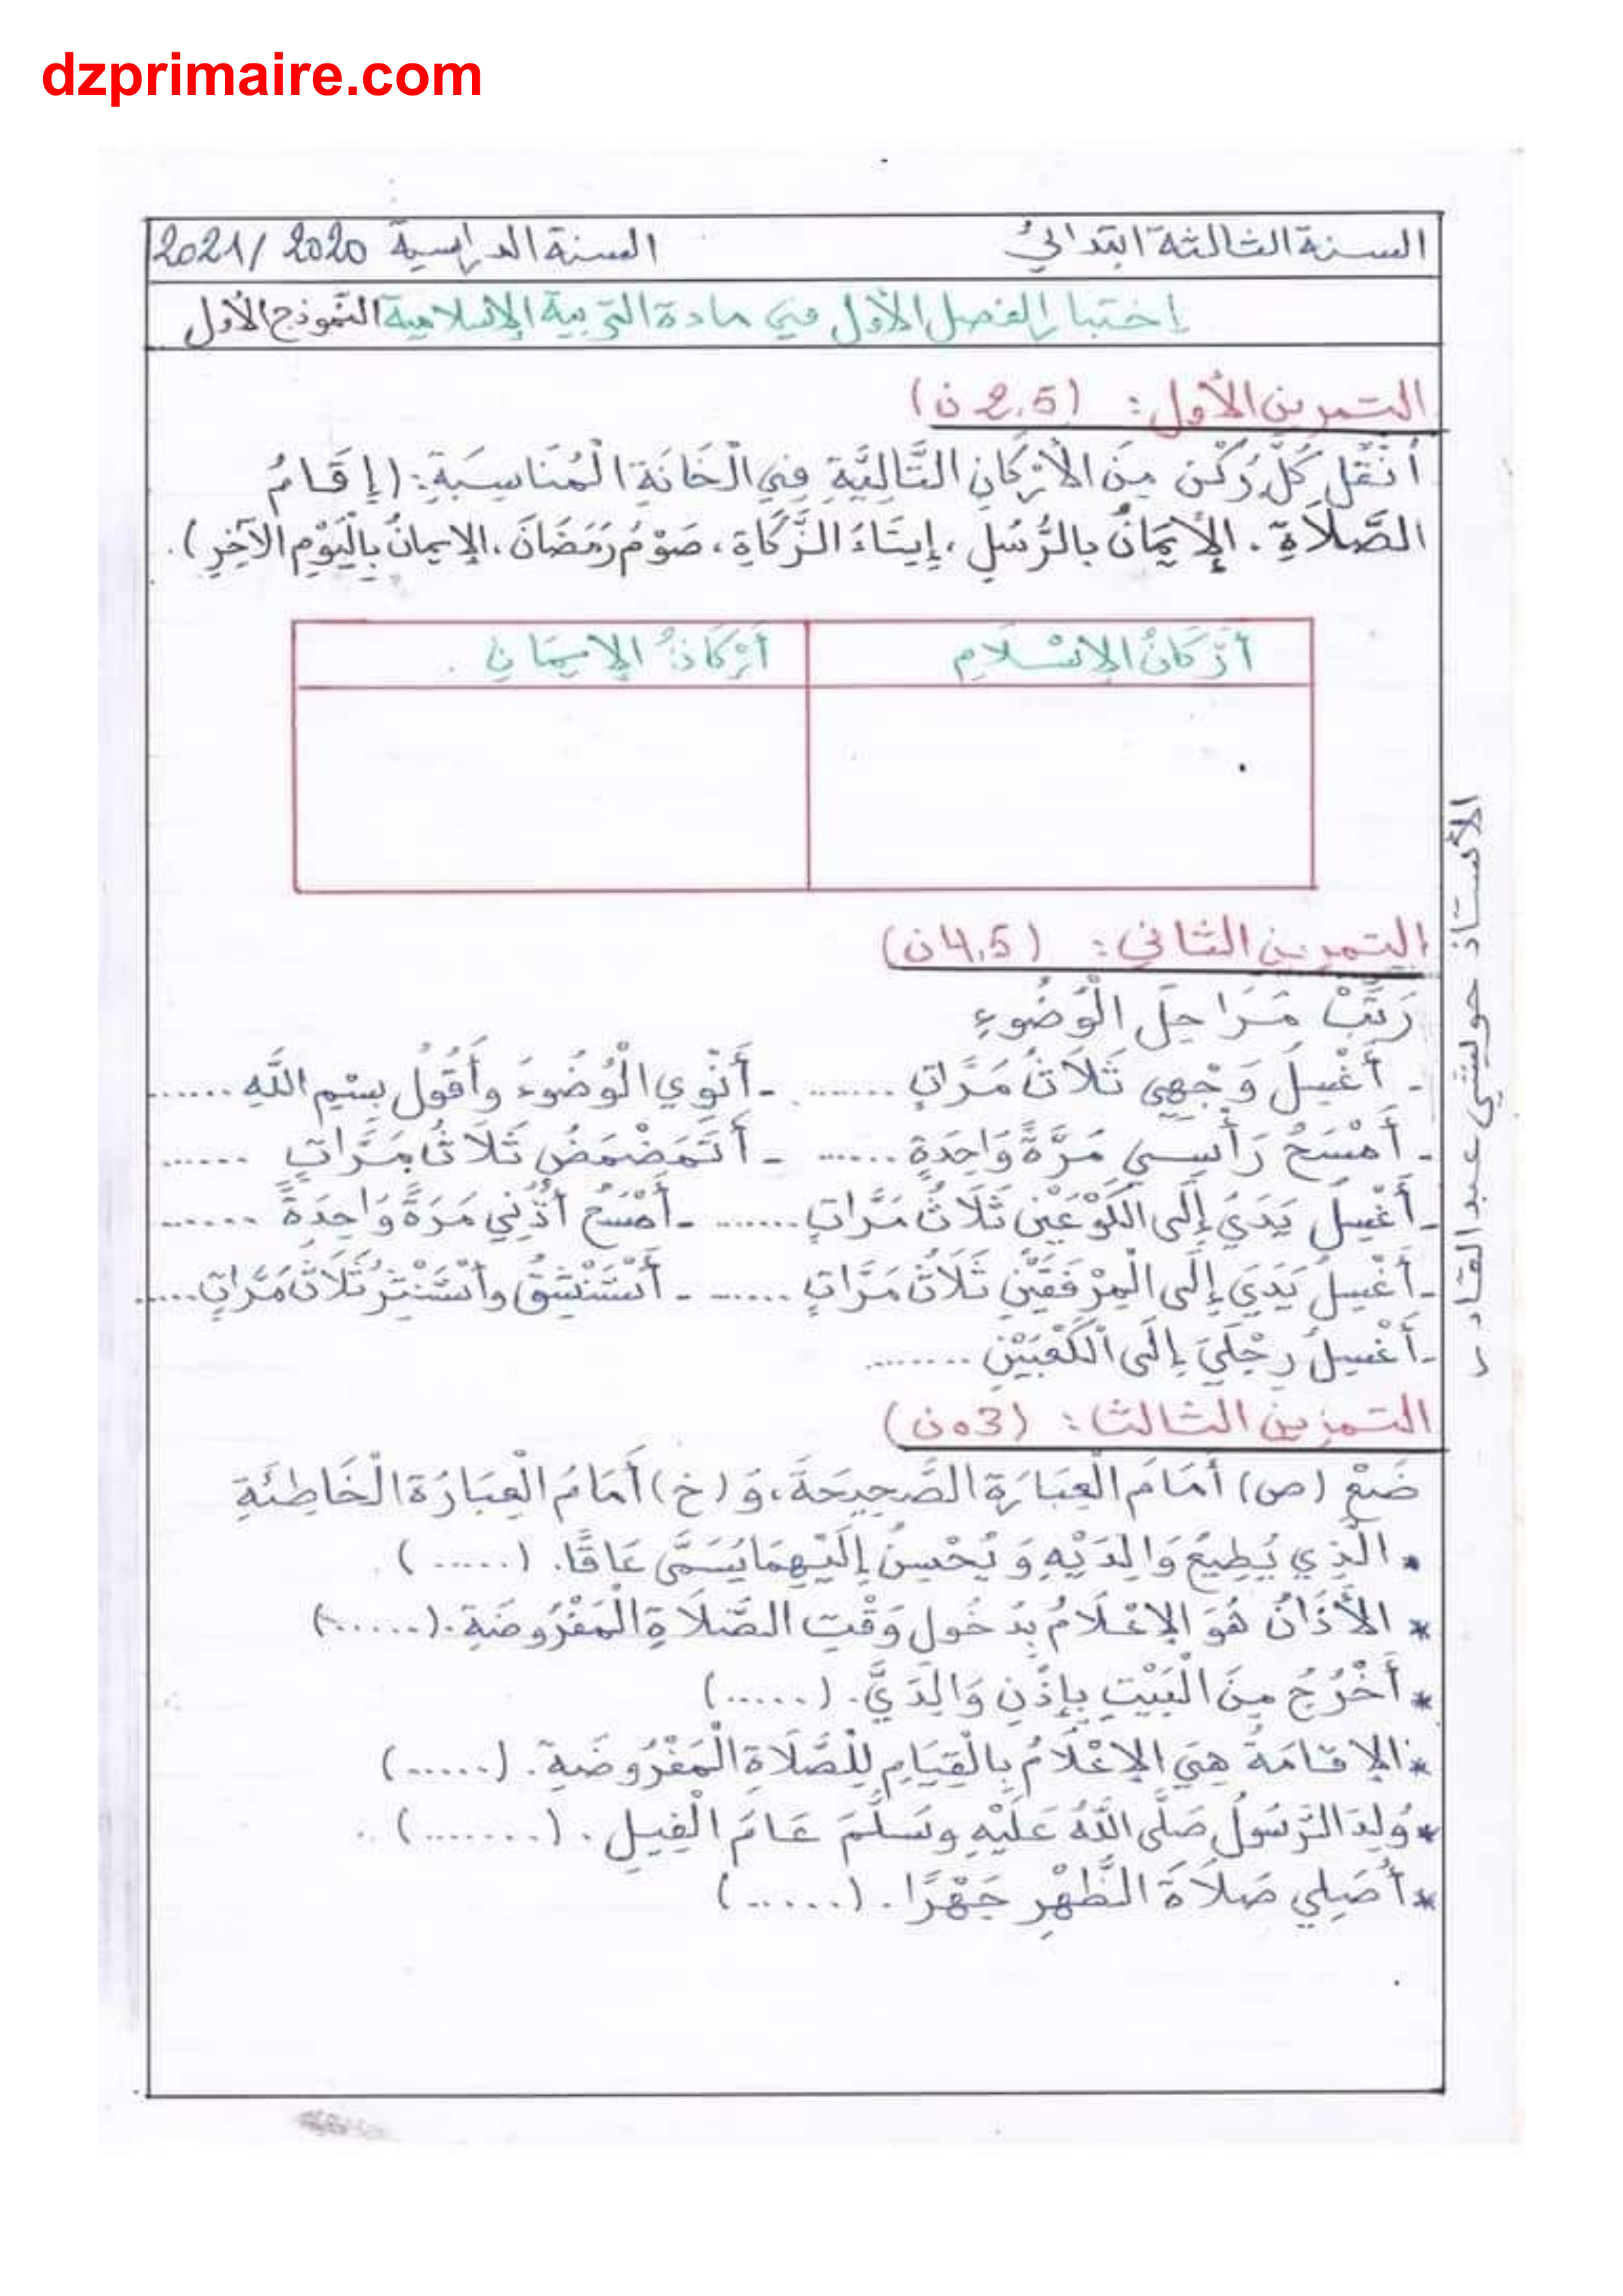 dzprimaire.com
السنة الثالثة ابتدائي السنة الدراسية 2020 / 2021
إختبار الفصل الأول في مادة التربية الإسلامية النموذج الأول
التمرين الأول: (2.5 ن)
أَنْقُلُ كُلَّ رُكْنٍ مِنَ الْأَرْكَانِ التَّالِيَّةِ فِي الْخَانَةِ الْمُنَاسِبَةِ: (إِقَامُ
الصَّلَاةِ ، الْإِيمَانُ بِالرُّسُلِ ، إِيتَاءُ الزَّكَاةِ ، صَوْمُ رَمَضَانَ ، الإِيمَانُ بِالْيَوْمِ الآخِرِ ).
أَرْكَانُ الإِسْلَامِ أَرْكَانُ الإِيمَانِ
التمرين الثاني: (4.5 ن)
رَتِّبْ مَرَاحِلَ الْوُضُوءِ
- أَغْسِلُ وَجْهِي ثَلَاثَ مَرَّاتٍ ........ - أَنْوِي الْوُضُوءَ وأَقُولُ بِسْمِ اللَّهِ ......
- أَمْسَحُ رَأْسِي مَرَّةً وَاحِدَةٍ ...... - أَتَمَضْمَضُ ثَلَاثَ مَرَّاتٍ ......
- أَغْسِلُ يَدَيَ إِلَى الكَوْعَيْنِ ثَلَاثَ مَرَّاتٍ ....... - أَمْسَحُ أذُنِي مَرَةً وَاحِدَةً .......
- أَغْسِلُ يَدَيَ إِلَى الْمِرْفَقَيْنِ ثَلَاثَ مَرَّاتٍ ....... - أَسْتَنْشِقُ وأَسْتَنْثِرُ ثَلَاثَ مَرَّاتٍ .....
- أَغْسِلُ رِجْلَيَ إِلَى الْكَعْبَيْنِ ........
التمرين الثالث: (03 ن)
ضَعْ (ص) أَمَامَ الْعِبَارَةِ الصَّحِيحَةَ، وَ (خ) أَمَامَ الْعِبَارَةِ الْخَاطِئَةِ
• الَّذِي يُطِيعُ وَالِدَيْهِ وَ يُحْسِنُ إِلَيْهِمَا يُسَمَّى عَاقًّا. (......)
* الأَذَانُ هُوَ الإِعْلَامُ بِدُخُولِ وَقْتِ الصَّلَاةِ الْمَفْرُوضَةِ. (......)
* أَخْرُجُ مِنَ الْبَيْتِ بِإِذْنِ وَالِدَيَّ. (......)
* الإِقَامَةُ هِيَ الإِعْلَامُ بِالْقِيَامِ لِلْصَّلَاةِ الْمَفْرُوضَةِ. (......)
* وُلِدَ الرَّسُولُ صَلَّى اللَّهُ عَلَيْهِ وسَلَّمَ عَامَ الْفِيلِ. (........)
* أُصَلِي صَلَاةَ الظُّهْرِ جَهْرًا. (......)
الأستاذ حوليشي عبد القادر